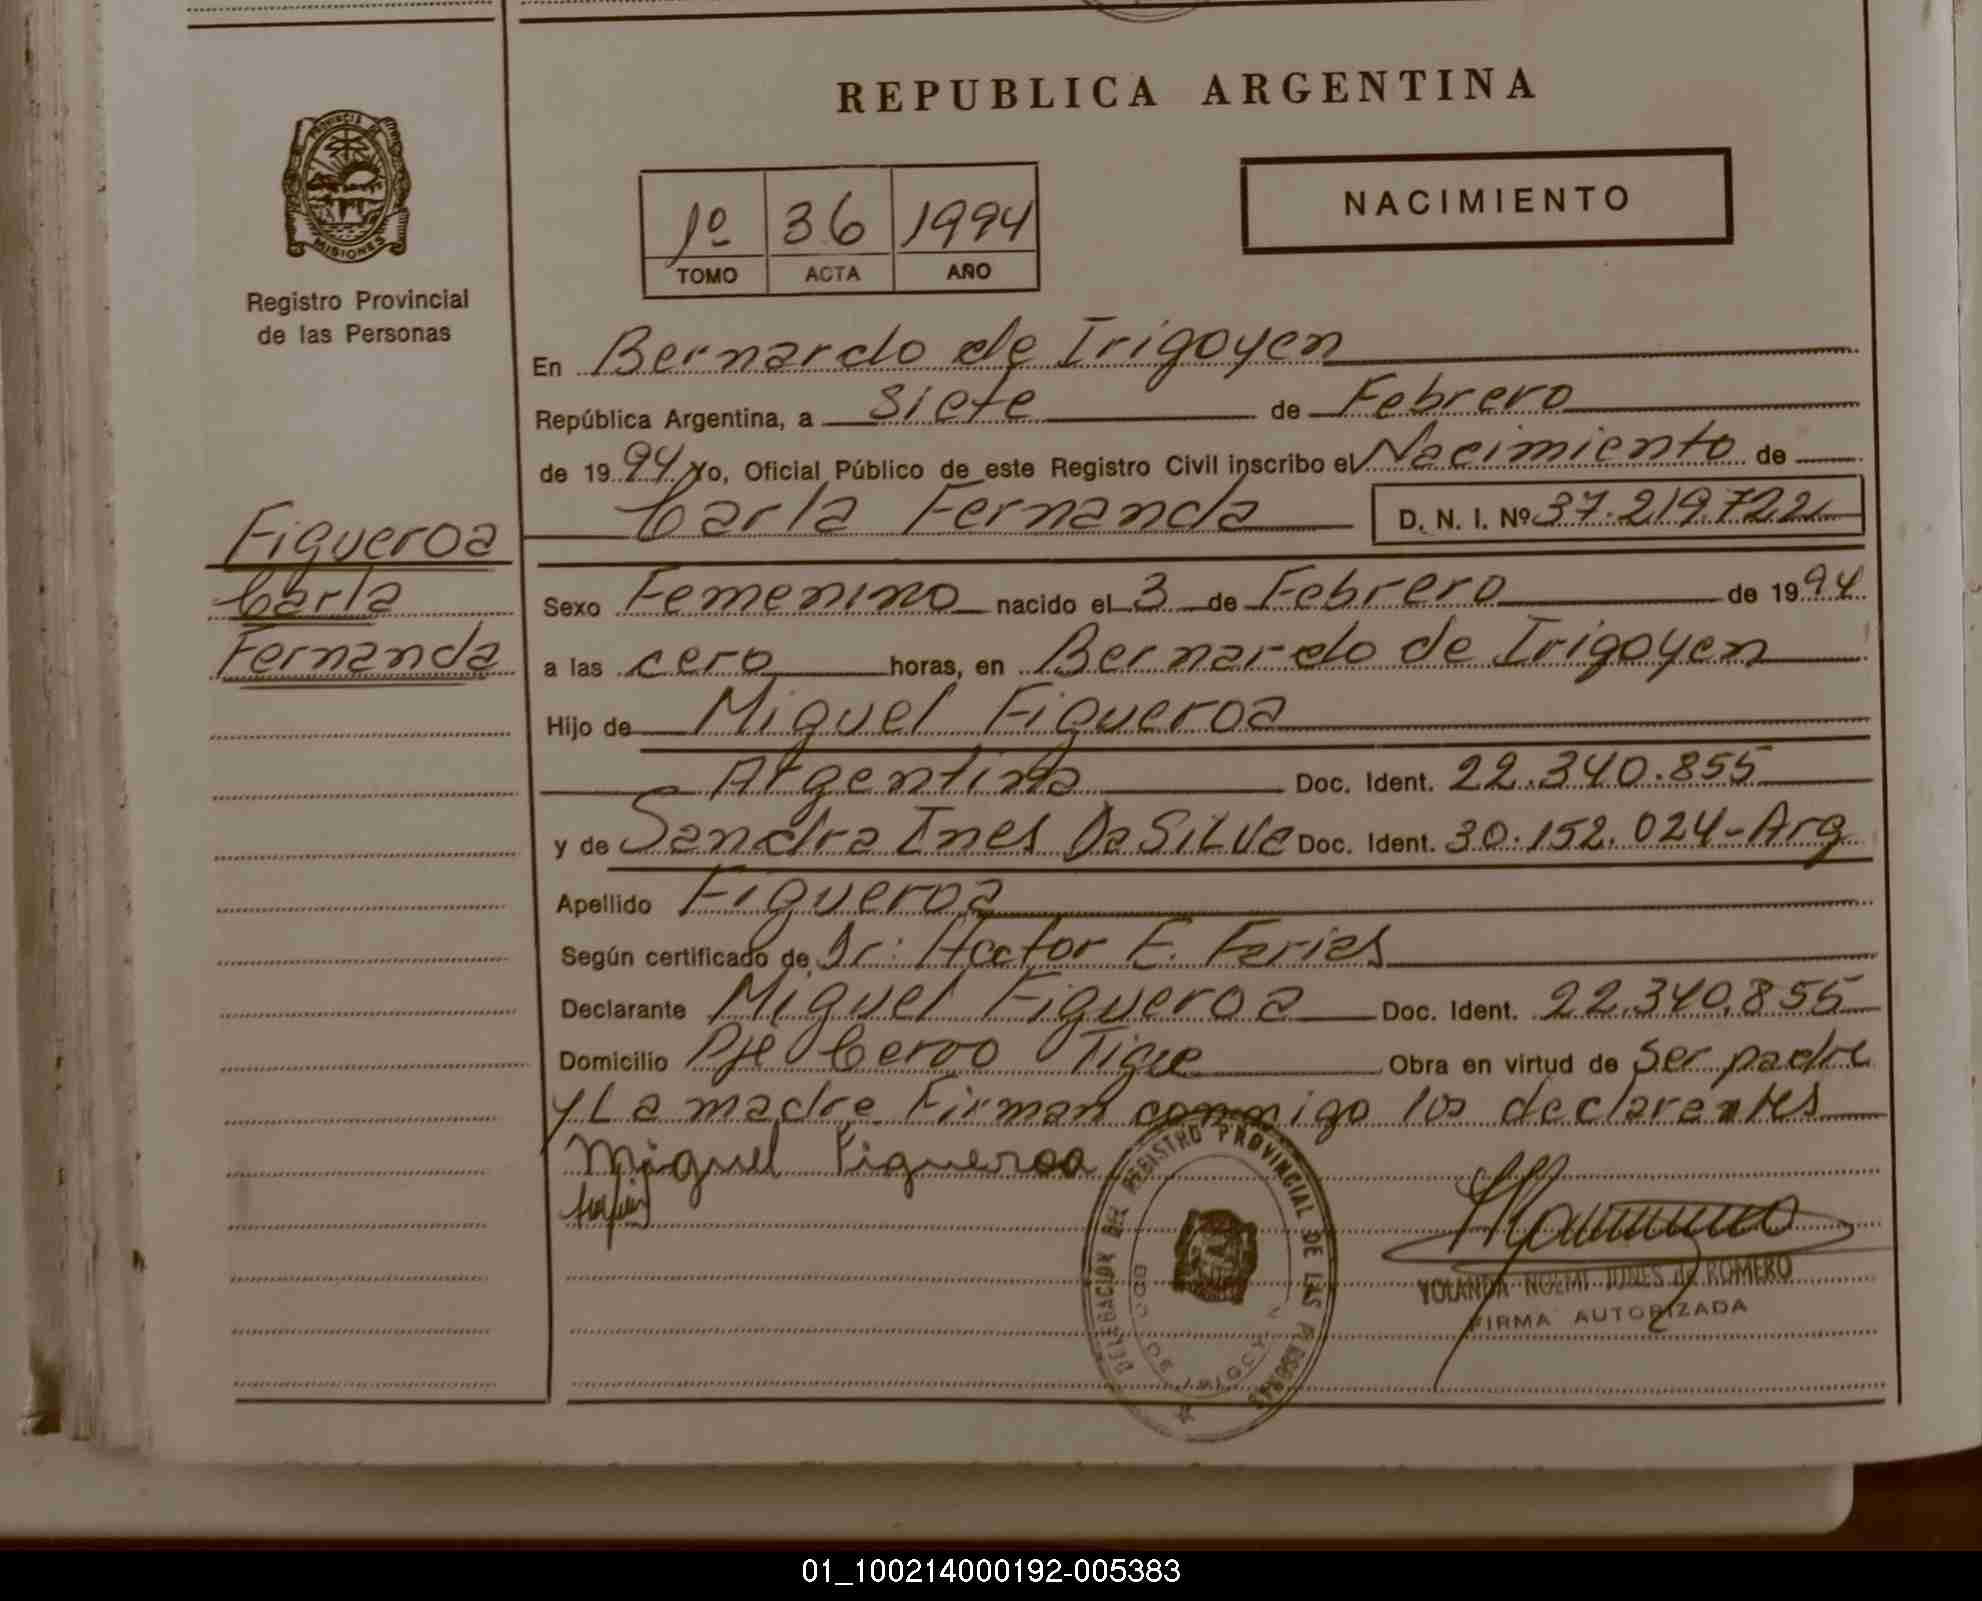 REPUBLICA ARGENTINA
PROVINCIA DE MISIONES
Registro Provincial
de las Personas
NACIMIENTO
1º 36 1994
TOMO ACTA AÑO
En Bernardo de Irigoyen
República Argentina, a Siete de Febrero
de 1994 Yo, Oficial Público de este Registro Civil inscribo el Nacimiento de
Carla Fernanda D. N. I. Nº 37.219.722
Figueroa
Carla
Fernanda
Sexo Femenino nacido el 3 de Febrero de 1994
a las cero horas, en Bernardo de Irigoyen
Hijo de Miguel Figueroa
Argentina Doc. Ident. 22.340.855
y de Sandra Ines DaSilva Doc. Ident. 30.152.024-Arg
Apellido Figueroa
Según certificado de Dr: Hector E. Farias
Declarante Miguel Figueroa Doc. Ident. 22.340.855
Domicilio Pje Cerro Tigre Obra en virtud de Ser padre
y La madre Firman conmigo los declarantes
Miguel Figueroa
DELEGACION DEL REGISTRO PROVINCIAL DE LAS PERSONAS
BDO DE IRIGOYEN
YOLANDA NOEMI JONES de ROMERO
FIRMA AUTORIZADA
01_100214000192-005383